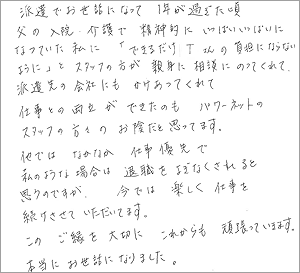 派遣でお世話になって 1年が過ぎた頃
父の入院・介護で 精神的に いっぱいいっぱいに
なっていた 私に 「できるだけ Tさんの 負担にならない
ように」と スタッフの方が 親身に 相談にのってくれて、
派遣先の会社にも かけあってくれて
仕事との両立が できたのも パワーネットの
スタッフの方々の お陰だと思ってます。
他では なかなか 仕事優先で
私のような 場合は 退職を よぎなくされると
思うのですが、 今では 楽しく 仕事を
続けさせて いただいてます。
この ご縁を 大切に これからも 頑張っていきます。
本当に お世話になりました。